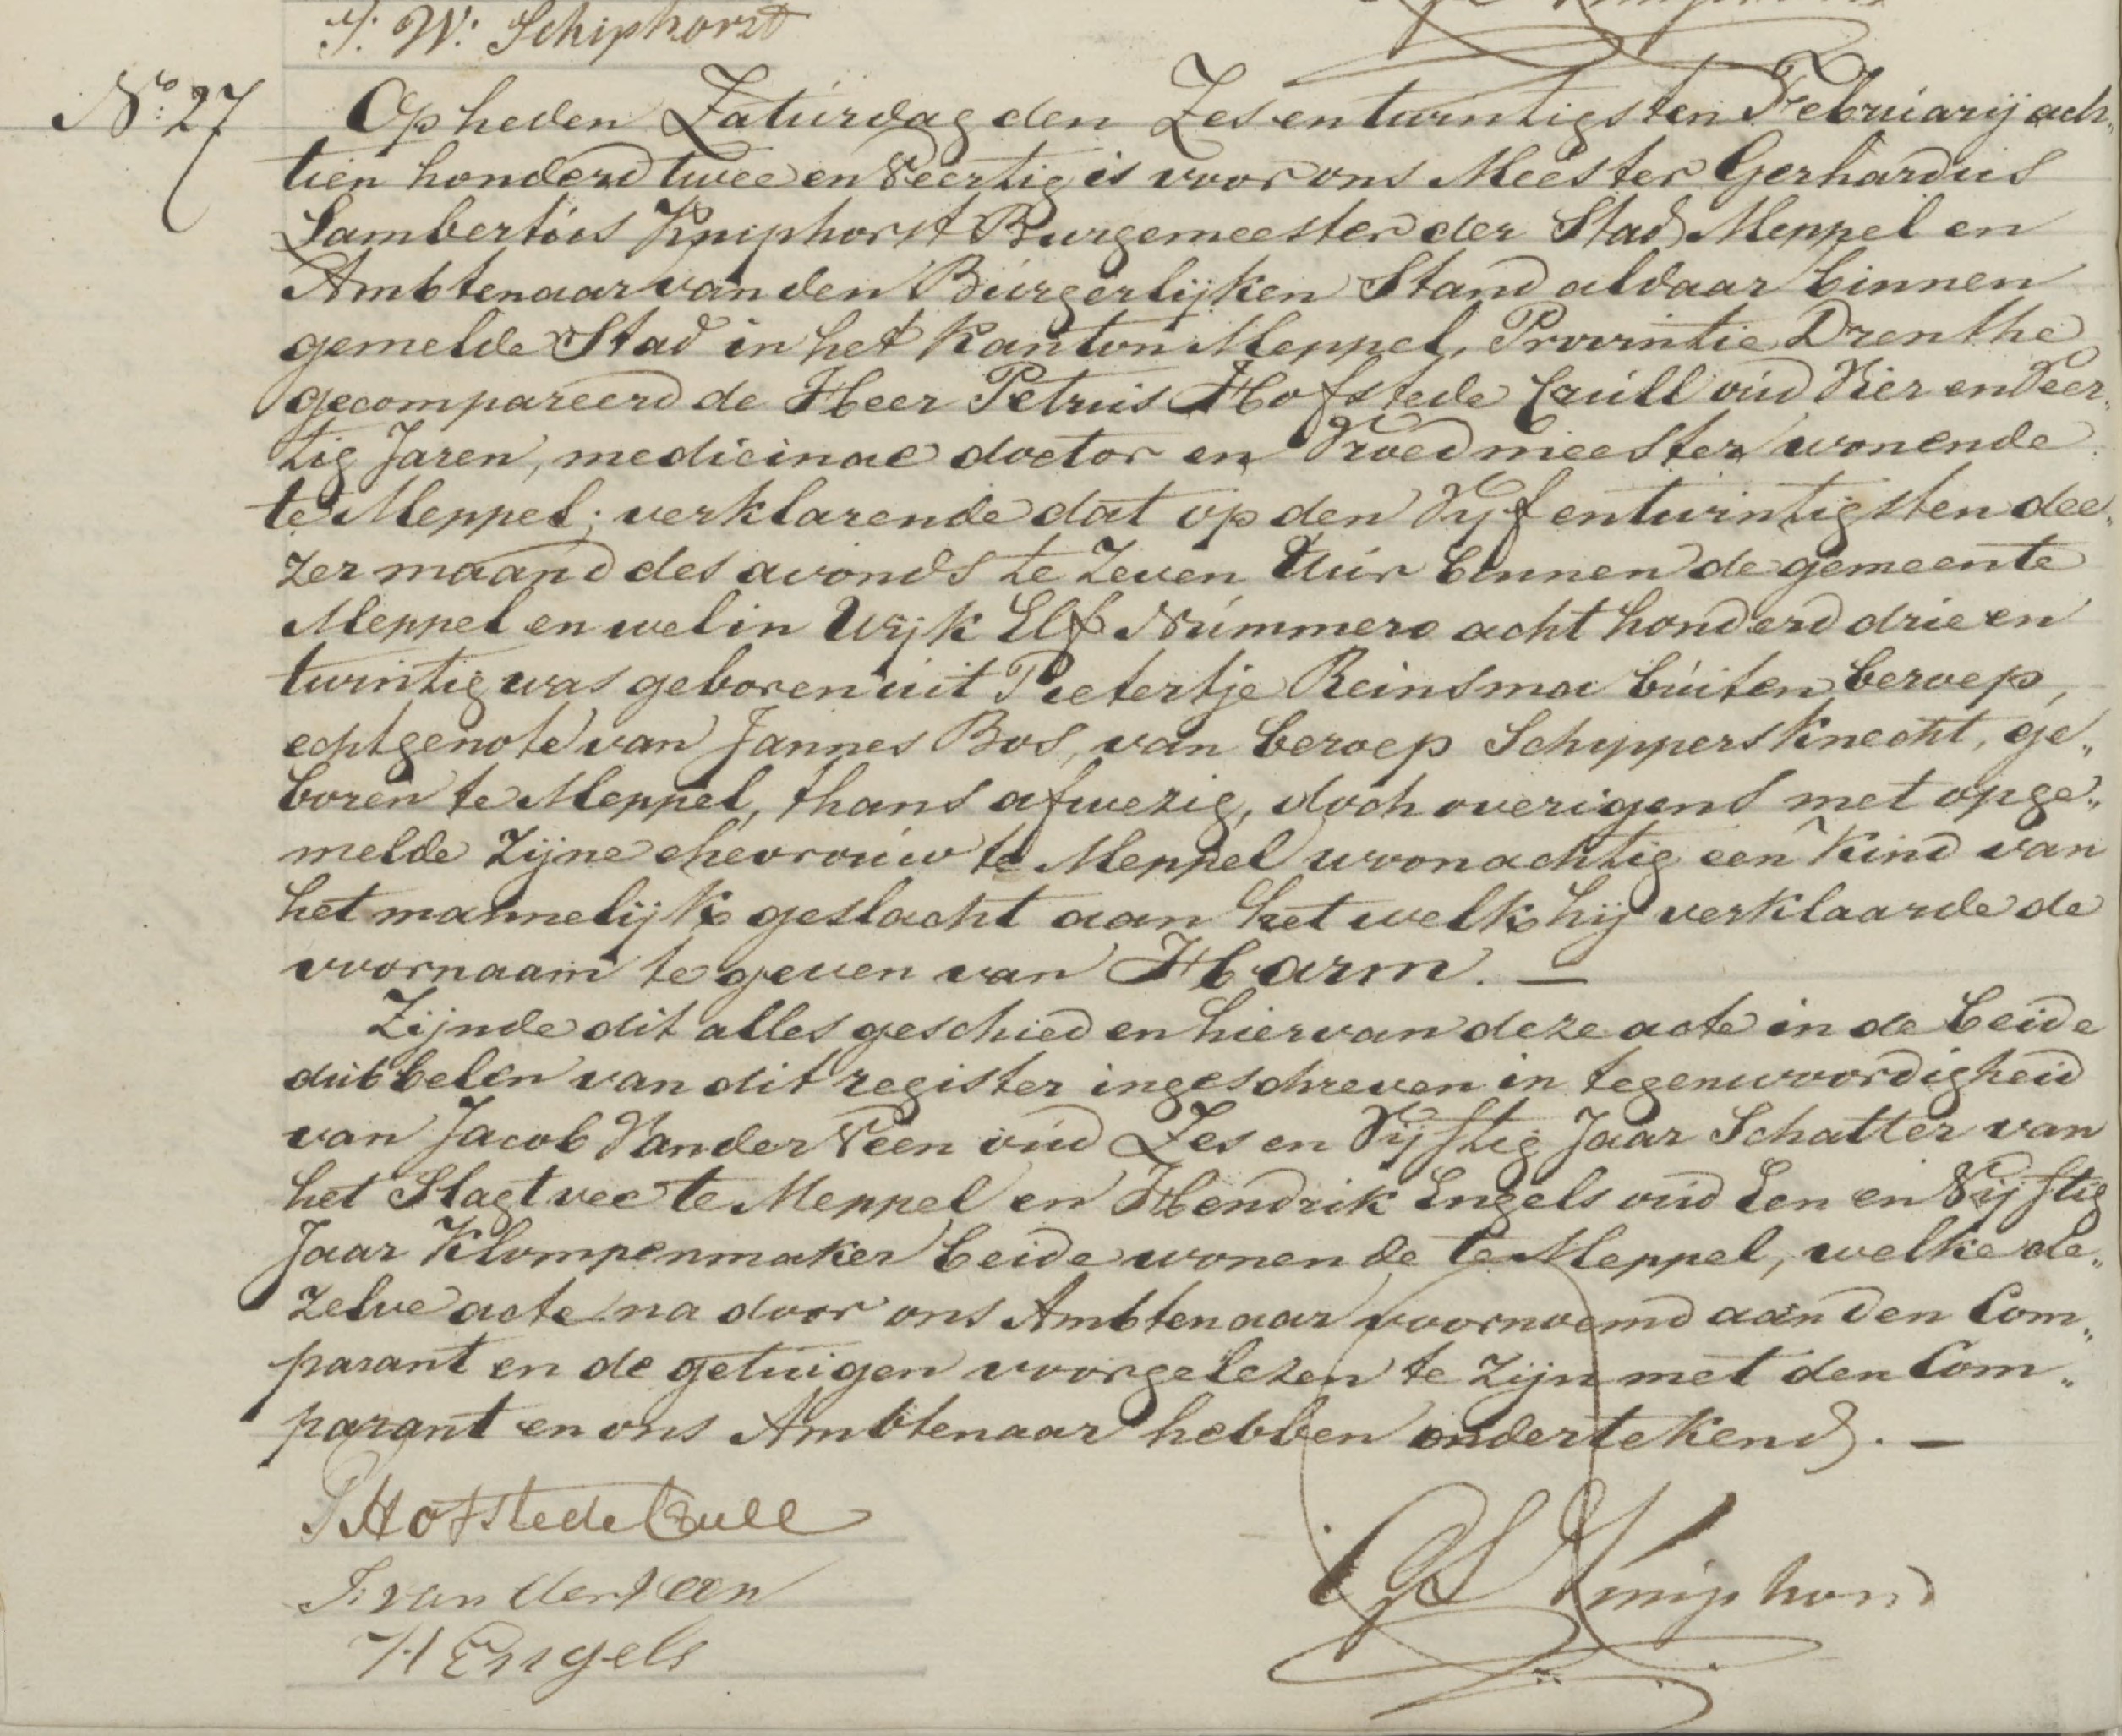 J. W. Schiphorst
No. 27
Op heden Zaturdag den Zesentwintigsten Februarij ach„
tien honderd twee en Veertig is voor ons Meester Gerhardus
Lambertus Kniphorst Burgemeester der Stad Meppel en
Ambtenaar van den Burgerlijken Stand aldaar binnen
gemelde Stad in het Kanton Meppel, Provintie Drenthe
gecompareerd de Heer Petrus Hofstede Crull oud Vier en Veer„
tig Jaren, medicinae doctor en Vroedmeester wonende
te Meppel; verklarende dat op den Vyf entwintigsten dee„
zer maand des avonds te Zeven Uur binnen de gemeente
Meppel en wel in Wijk Elf Nummero acht honderd drie en
twintig was geboren uit Pietertje Reinsma buiten beroep,
echtgenote van Jannes Bos, van beroep Schippersknecht, ge„
boren te Meppel, thans afwezig, doch overigens met opge„
melde Zijne ehevrouw te Meppel woonachtig een Kind van
het mannelijk geslacht aan het welk hij verklaarde de
voornaam te geven van Harm. —
Zijnde dit alles geschied en hiervan deze acte in de beide
dubbelen van dit register ingeschreven in tegenwoordigheid
van Jacob Van der Veen oud Zes en Vijftig Jaar Schatter van
het Slagtvee te Meppel en Hendrik Engels oud Een en Vijftig
Jaar Klompenmaker beide wonende te Meppel, welke de„
zelve acte na door ons Ambtenaar voornoemd aan den Com„
parant en de getuigen voorgelezen te Zijn met den Com„
parant en ons Ambtenaar hebben ondertekend. —
P Hofstede Crull
J. van der Veen
H Engels
GL Kniphorst